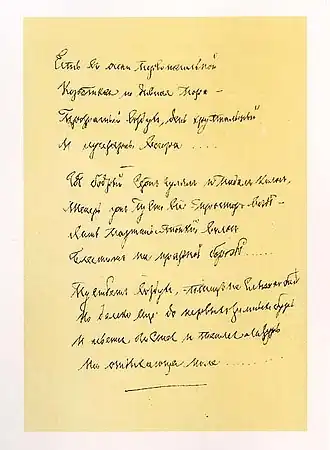 Есть въ осени первоначальной
Короткая но дивная пора —
Прозрачный воздухъ, день хрустальный
И лучезарны вечера .....
Где бодрый серпъ гулялъ и падалъ колосъ,
Теперь ужъ пусто все просторъ везде —
Лишь паутины тонкій волосъ
Блеститъ на праздной борозде ......
Пустеетъ воздухъ, птицъ не слышно боле
Но далеко еще до первыхъ зимнихъ бурь
И льется чистая и теплая лазурь
На отдыхающее поле ........